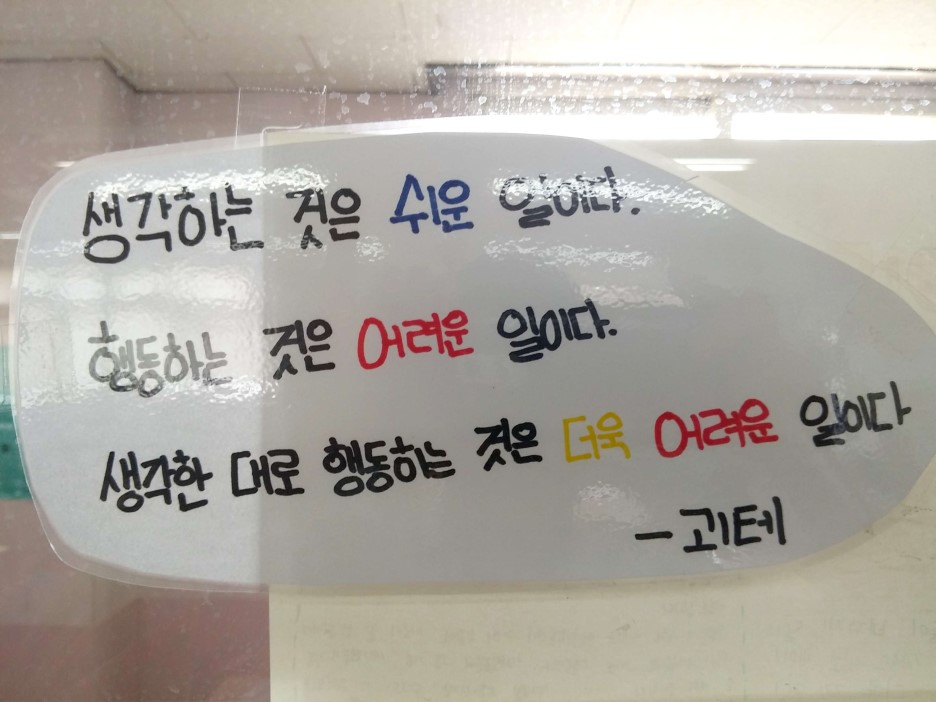 생각하는 것은 쉬운 일이다.
행동하는 것은 어려운 일이다.
생각한 대로 행동하는 것은 더욱 어려운 일이다
- 괴테